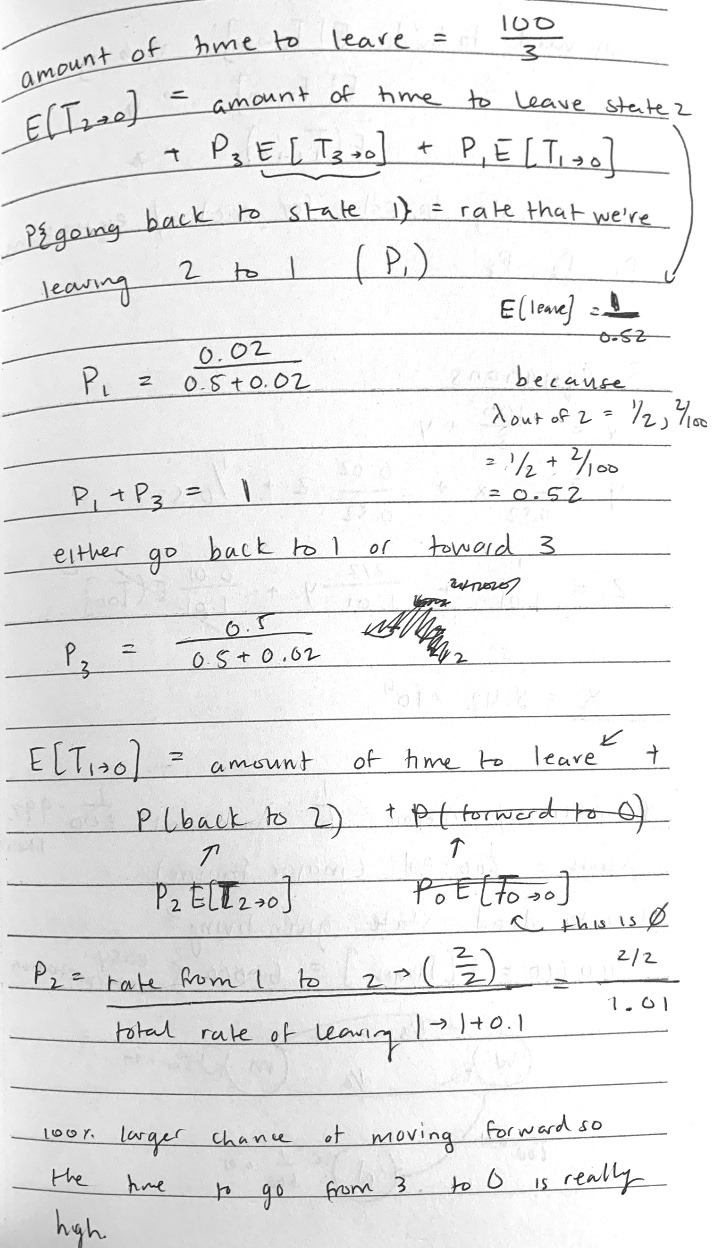 amount of time to leave = 100/3
E[T2→0] = amount of time to leave state 2
+ P3 E[T3→0] + P1 E[T1→0]
P{going back to state 1} = rate that we're
leaving 2 to 1 (P1)
E[leave] = 1/0.52
P1 = 0.02/(0.5+0.02)
because
λ out of 2 = 1/2, 2/100
= 1/2 + 2/100
P1 + P3 = 1
= 0.52
either go back to 1 or toward 3
P3 = 0.5/(0.5+0.02)
E[T1→0] = amount of time to leave ↙ +
P(back to 2) + P(forward to 0)
↑ ↑
P2 E[T2→0] P0 E[T0→0]
↖ this is ∅
P2 = rate from 1 to 2 → (2/2) / total rate of leaving 1 → 1+0.1 = 2/2 / 1.01
100% larger chance of moving forward so
the time to go from 3 to 0 is really
high.